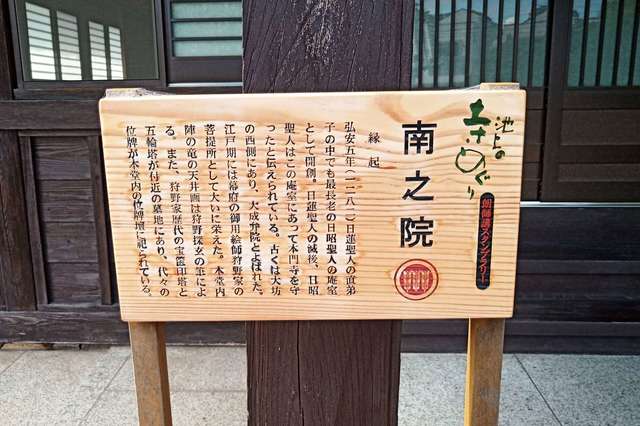 池上の
寺めぐり
朗師講スタンプラリー
南之院
縁起
弘安五年(一二八二)日蓮聖人の直弟
子の中でも最長老の日昭聖人の庵室
として開創。日蓮聖人の滅後、日昭
聖人はこの庵室にあって本門寺を守
ったと伝えられている。古くは大坊
の西側にあり、大成辨院とよばれた。
江戸期には幕府の御用絵師狩野家の
菩提所として大いに栄えた。本堂内
陣の竜の天井画は狩野探玄の筆によ
る。また、狩野家歴代の宝篋印塔と
五輪塔が付近の墓地にあり、代々の
位牌が本堂内の位牌壇に祀られている。